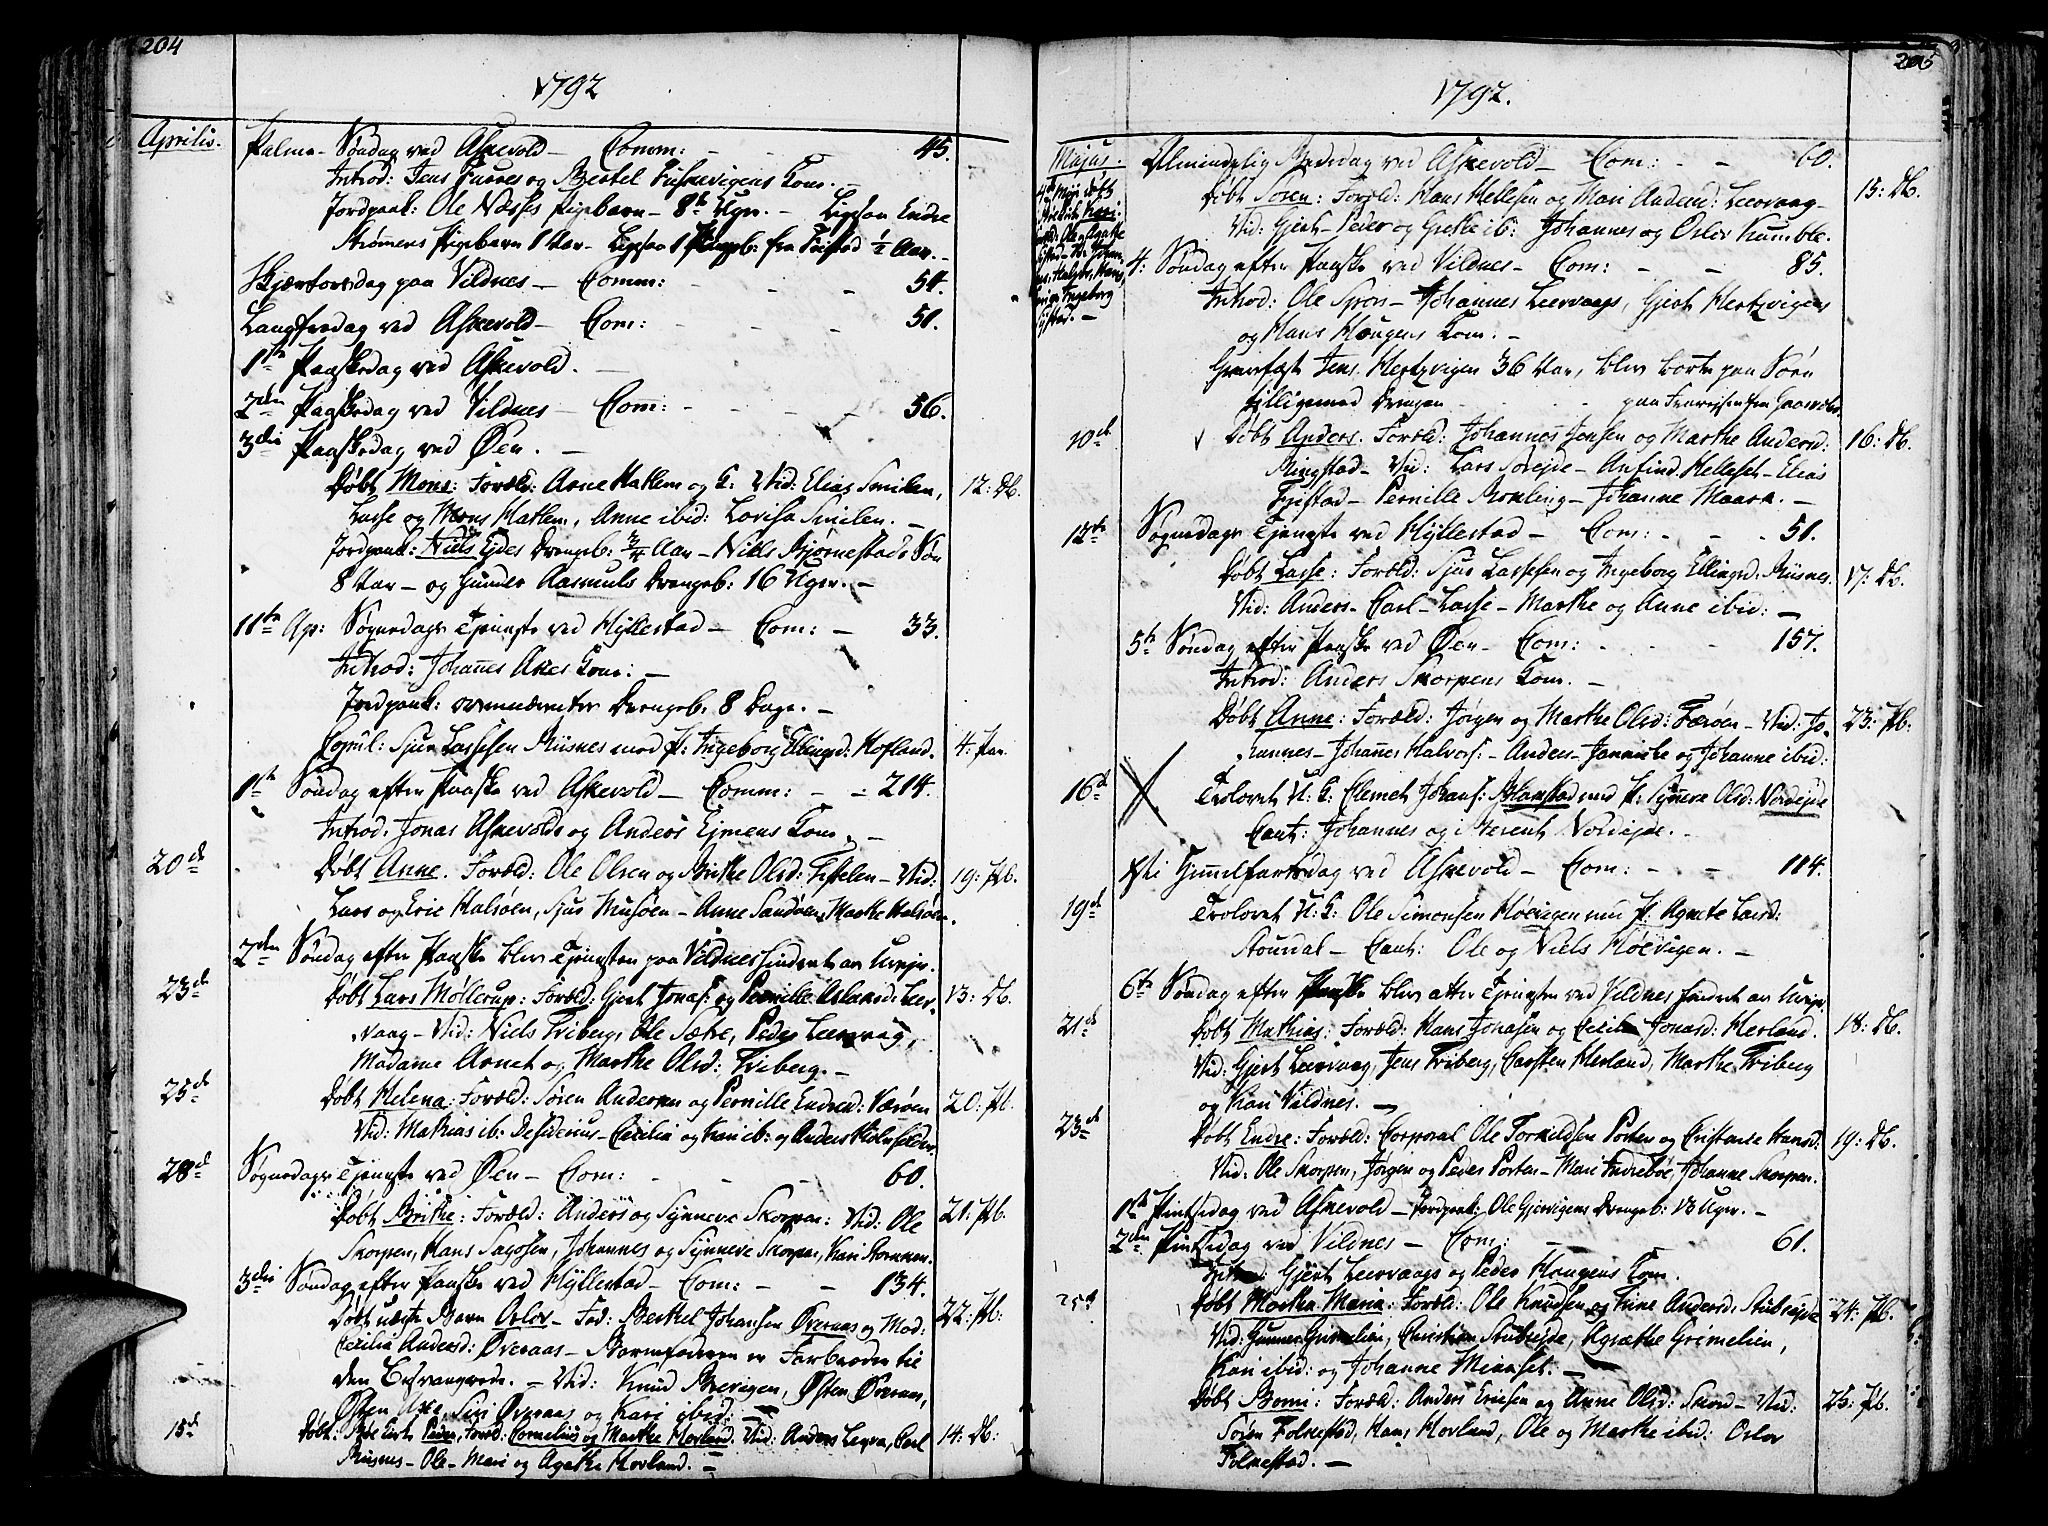 204
1792
Aprilis.
Palme-Søndag ved Askevold - Comm: - - - 45.
Introd: Jens Furres og Bertel Fiskevigens Kom.
Jordpaak: Ole Næsses Pigebarn - 8te Uger. - Ligesaa Endre
Strømens Pigebarn 1 Aar - Ligesaa 1 Pigeb: fra Fristad 1/2 Aar. -
Skjærtorsdag paa Vildnes - Comm: - - - 54.
Langfredag ved Askevold - Com: - - - 51.
1te Paaskedag ved Askevold. -
2den Paaskedag ved Vildnes - Com: - - - 56.
3die Paaskedag ved Øen. -
Døbt Mons: Foræld: Arne Hatlem og K: Vid: Elias Smilen, 12: Db.
Lasse og Mons Hatlem, Anne ibid: Lovisa Smilen. -
Jordpaak: Niels Ejdes Drengeb: 3/4 Aar - Niels Bjørnestads Søn
8 Aar - og Gunder Aasmuls Drengeb: 16 Uger. -
11te Ap: Søgnedags Tjeneste ved Hyllestad - Com: - 33.
Introd: Johannes Akes Kone: -
Jordpaak: Drengeb: 8 Dage. -
Copul: Sjur Lassesen Risnes med P: Ingeborg Ellingsd: Hofland. 4: Par
1te Søndag efter Paaske ved Askevold - Comm: - - 214.
Introd: Jonas Askevolds og Anders Ejmens Kom. -
20de Døbt Anne. Foræld: Ole Olsen og Brithe Olsd: Tistelen - Vid: 19: Pb.
Lars og Eric Halsøen, Sjur Musøen - Anne Sandøen, Marthe Halsøen.
2den Søndag efter Paaske blev Tjenesten paa Vildnes hindret av Uvejr.
23de Døbt Lars Møllerup: Foræld: Gjert Jonas: og Pernille Aslansd: Leer- 13: Db.
vaag - Vid: Niels Friberg, Ole Sætre, Peder Leervaag,
Madame Arnet og Marthe Olsd: Friberg. -
25de Døbt Helena: Foræld: Søren Andersen og Pernille Endresd: Værøen 20: Pb.
Vid: Mathias ib: Desiderius - Cecilia og Kari ib: og Anders
28de Søgnedags Tjeneste ved Øen - Com: - - - 60.
Døbt Brithe: Foræld: Anders og Synneve Skorpen: Vid: Ole 21: Pb.
Skorpen, Hans Sagøsen, Johannes og Synneve Skorpen, Kari Stormnen.
3die Søndag efter Paaske ved Hyllestad - Com: - - 134.
Døbt uægte Barn Oslov - Fad: Berthel Johansen Øveraas og Mod: 22: Pb:
Cecilia Andersd: Øveraas - Barnefaderen er Farbroder til
den Besvangrede. - Vid: Knud Brevigen, Østen Øveraas,
Østen Ake, Siri Øveraas og Kari ibid: -
15de Døbt: Peder, Foræld: Cornelius og Marthe Horland. Vid: Anders Leyra, Carl 14: Db:
Risnes - Ole - Mari og Agathe Horland. -
205
1792.
Majus.
Almindelig Bededag ved Askevold - Com: - - 60.
Døbt Søren: Foræld: Hans Hellesen og Mari Andersd: Leervaag - 15: Db.
Vid: Gjert - Peder og Grethe ib: Johannes og Oslov Kumble.
4: Søndag efter Paaske ved Vildnes - Com: - - 85.
Introd: Ole Spors - Johannes Leervaags, Gjert Hertzvigens
og Hans Haugens Kom. -
Gravfæst Jens Hertzvigen 36 Aar, blev borte paa Søen
tilligemed Drengen - - - paa Frarejsen fra
10de Døbt Anders. Foræld: Johannes Jensen og Marthe Andersd: 16: Db.
Ringstad - Vid: Lars Sørejde - Anfind Helleset - Elias
Fristad - Pernille - Johanne Maara. -
12te Søgnedags Tjeneste ved Hyllestad - Com: - - - 51.
Døbt Lasse: Foræld: Sjur Lassesen og Ingeborg Ellingsd: Risnes. 17: Db.
Vid: Anders - Carl - Lasse - Marthe og Anne ibid: -
5te Søndag efter Paaske ved Øen - Com: - - - 157.
Introd: Anders Skorpens Kom. -
Døbt Anne: Foræld: Jørgen og Marthe Olsd: Færøen - Vid: Jo- 23: Pb:
hannes - Johannes Halvors: - Anders - Jannicke og Johanne ibid:
16de Trolovet U: K: Clemet Johans: med P: Synneve Olsd: Nordejde
Caut: Johannes og Berent Nordejde. -
Chi Himmelfartsdag ved Askevold - Com: - - 114.
19de Trolovet U: K: Ole Simonsen Høevigen med P: Agnete Larsd:
Stoudal - Caut: Ole og Niels Høevigen. -
6te Søndag efter Paaske blev atter Tjenesten ved Vildnes hindret av Uvejr
21de Døbt Mathias: Foræld: Hans Jonasen og Cecilia Jonasd: Herland. 18: Db.
Vid: Gjert Leervaag, Jens Friberg, Carsten Herland, Marthe Friberg
og Kari Vildnes. -
23de Døbt Endre: Foræld: Corporal Ole Torkildsen Porten og Cristense Hansd: 19: Db.
Vid: Ole Skorpen, Jørgen og Peder Porten - Mari Indrebøe, Johanne Skorpen.
1te Pintsedag ved Askevold - Jordpaak: Ole Gjervigens Drengeb: 13 Uger. -
2den Pintsedag ved Vildnes - Com: - - - 61.
Introd: Gjert Leervaags og Peder Haugens Kom.
Døbt Martha Maria: Foræld: Ole Knudsen og Trine Andersd: Stubsejde 24: Pb.
Vid: Gunner Grimelien, Christian Stubsejde, Agnethe Grimelien,
Kari ibid: og Johanne Mienset: -
Døbt Borni: Foræld: Anders Ericsen og Anne Olsd: Skord - Vid: 25: Pb.
Søren Folkestad, Hans Horland, Ole og Marthe ibid: Oslov
Folkestad. -